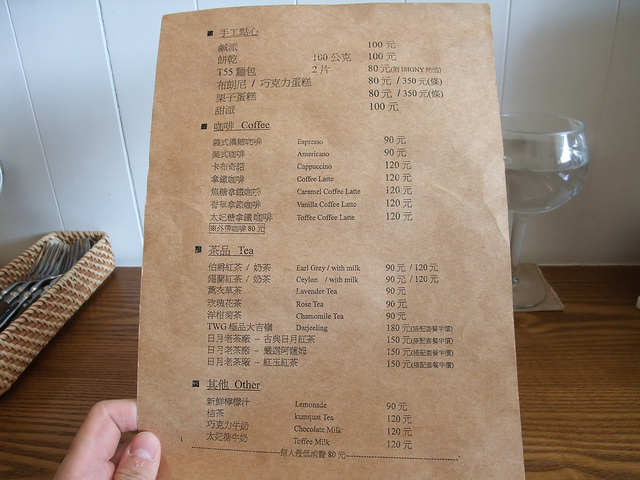 手工點心
鹹派 100 元
餅乾 100 公克 100 元
T55 麵包 2 片 80 元(附 ISIGNY 奶油)
布朗尼 / 巧克力蛋糕 80 元 / 350 元(條)
栗子蛋糕 80 元 / 350 元(條)
甜派 100 元
咖啡 Coffee
義式濃縮咖啡 Espresso 90 元
美式咖啡 Americano 90 元
卡布奇諾 Cappuccino 120 元
拿鐵咖啡 Coffee Latte 120 元
焦糖拿鐵咖啡 Caramel Coffee Latte 120 元
香草拿鐵咖啡 Vanilla Coffee Latte 120 元
太妃糖拿鐵咖啡 Toffee Coffee Latte 120 元
※外帶咖啡 80 元
茶品 Tea
伯爵紅茶 / 奶茶 Earl Grey / with milk 90 元 / 120 元
錫蘭紅茶 / 奶茶 Ceylon / with milk 90 元 / 120 元
薰衣草茶 Lavender Tea 90 元
玫瑰花茶 Rose Tea 90 元
洋柑菊茶 Chamomile Tea 90 元
TWG 極品大吉嶺 Darjeeling 180 元(搭配套餐半價)
日月老茶廠 - 古典日月紅茶 150 元(搭配套餐半價)
日月老茶廠 - 嚴選阿薩姆 150 元(搭配套餐半價)
日月老茶廠 - 紅玉紅茶 150 元(搭配套餐半價)
其他 Other
新鮮檸檬汁 Lemonade 90 元
桔茶 kumquat Tea 120 元
巧克力牛奶 Chocolate Milk 120 元
太妃糖牛奶 Toffee Milk 120 元
每人最低消費 80 元